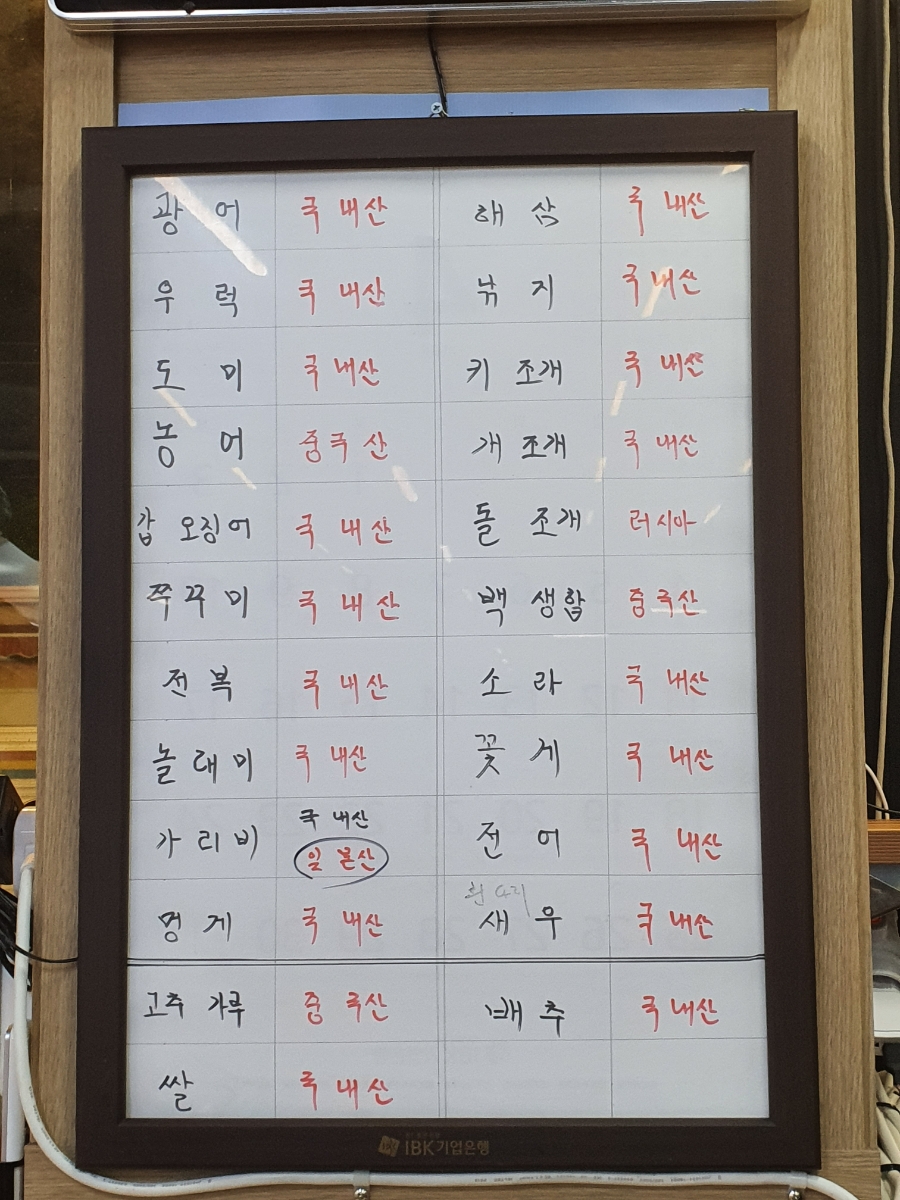 광어 국내산 해삼 국내산
우럭 국내산 낚지 국내산
도미 국내산 키조개 국내산
농어 중국산 개조개 국내산
갑오징어 국내산 돌조개 러시아
쭈꾸미 국내산 백생합 중국산
전복 국내산 소라 국내산
놀래미 국내산 꽃게 국내산
가리비 국내산 전어 국내산
일본산
흰다리
멍게 국내산 새우 국내산
고추가루 중국산 배추 국내산
쌀 국내산
IBK기업은행